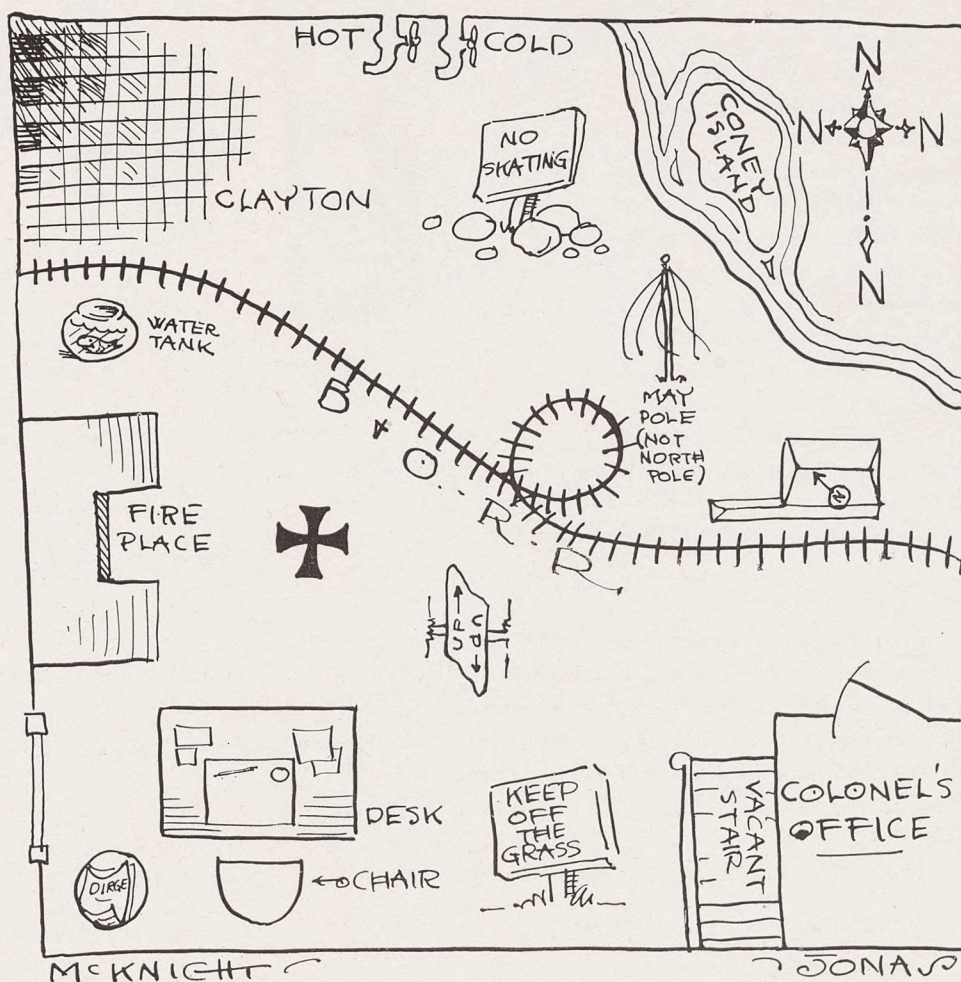 HOT
COLD
NO
SKATING
CONEY
ISLAND
N
N
N
N
CLAYTON
WATER
TANK
B & O. R. R.
MAY
POLE
(NOT
NORTH
POLE)
N
FIRE
PLACE
UP
UP
DESK
CHAIR
DIRGE
KEEP
OFF
THE
GRASS
VACANT
STAIR
COLONEL'S
OFFICE
McKNIGHT
JONAS